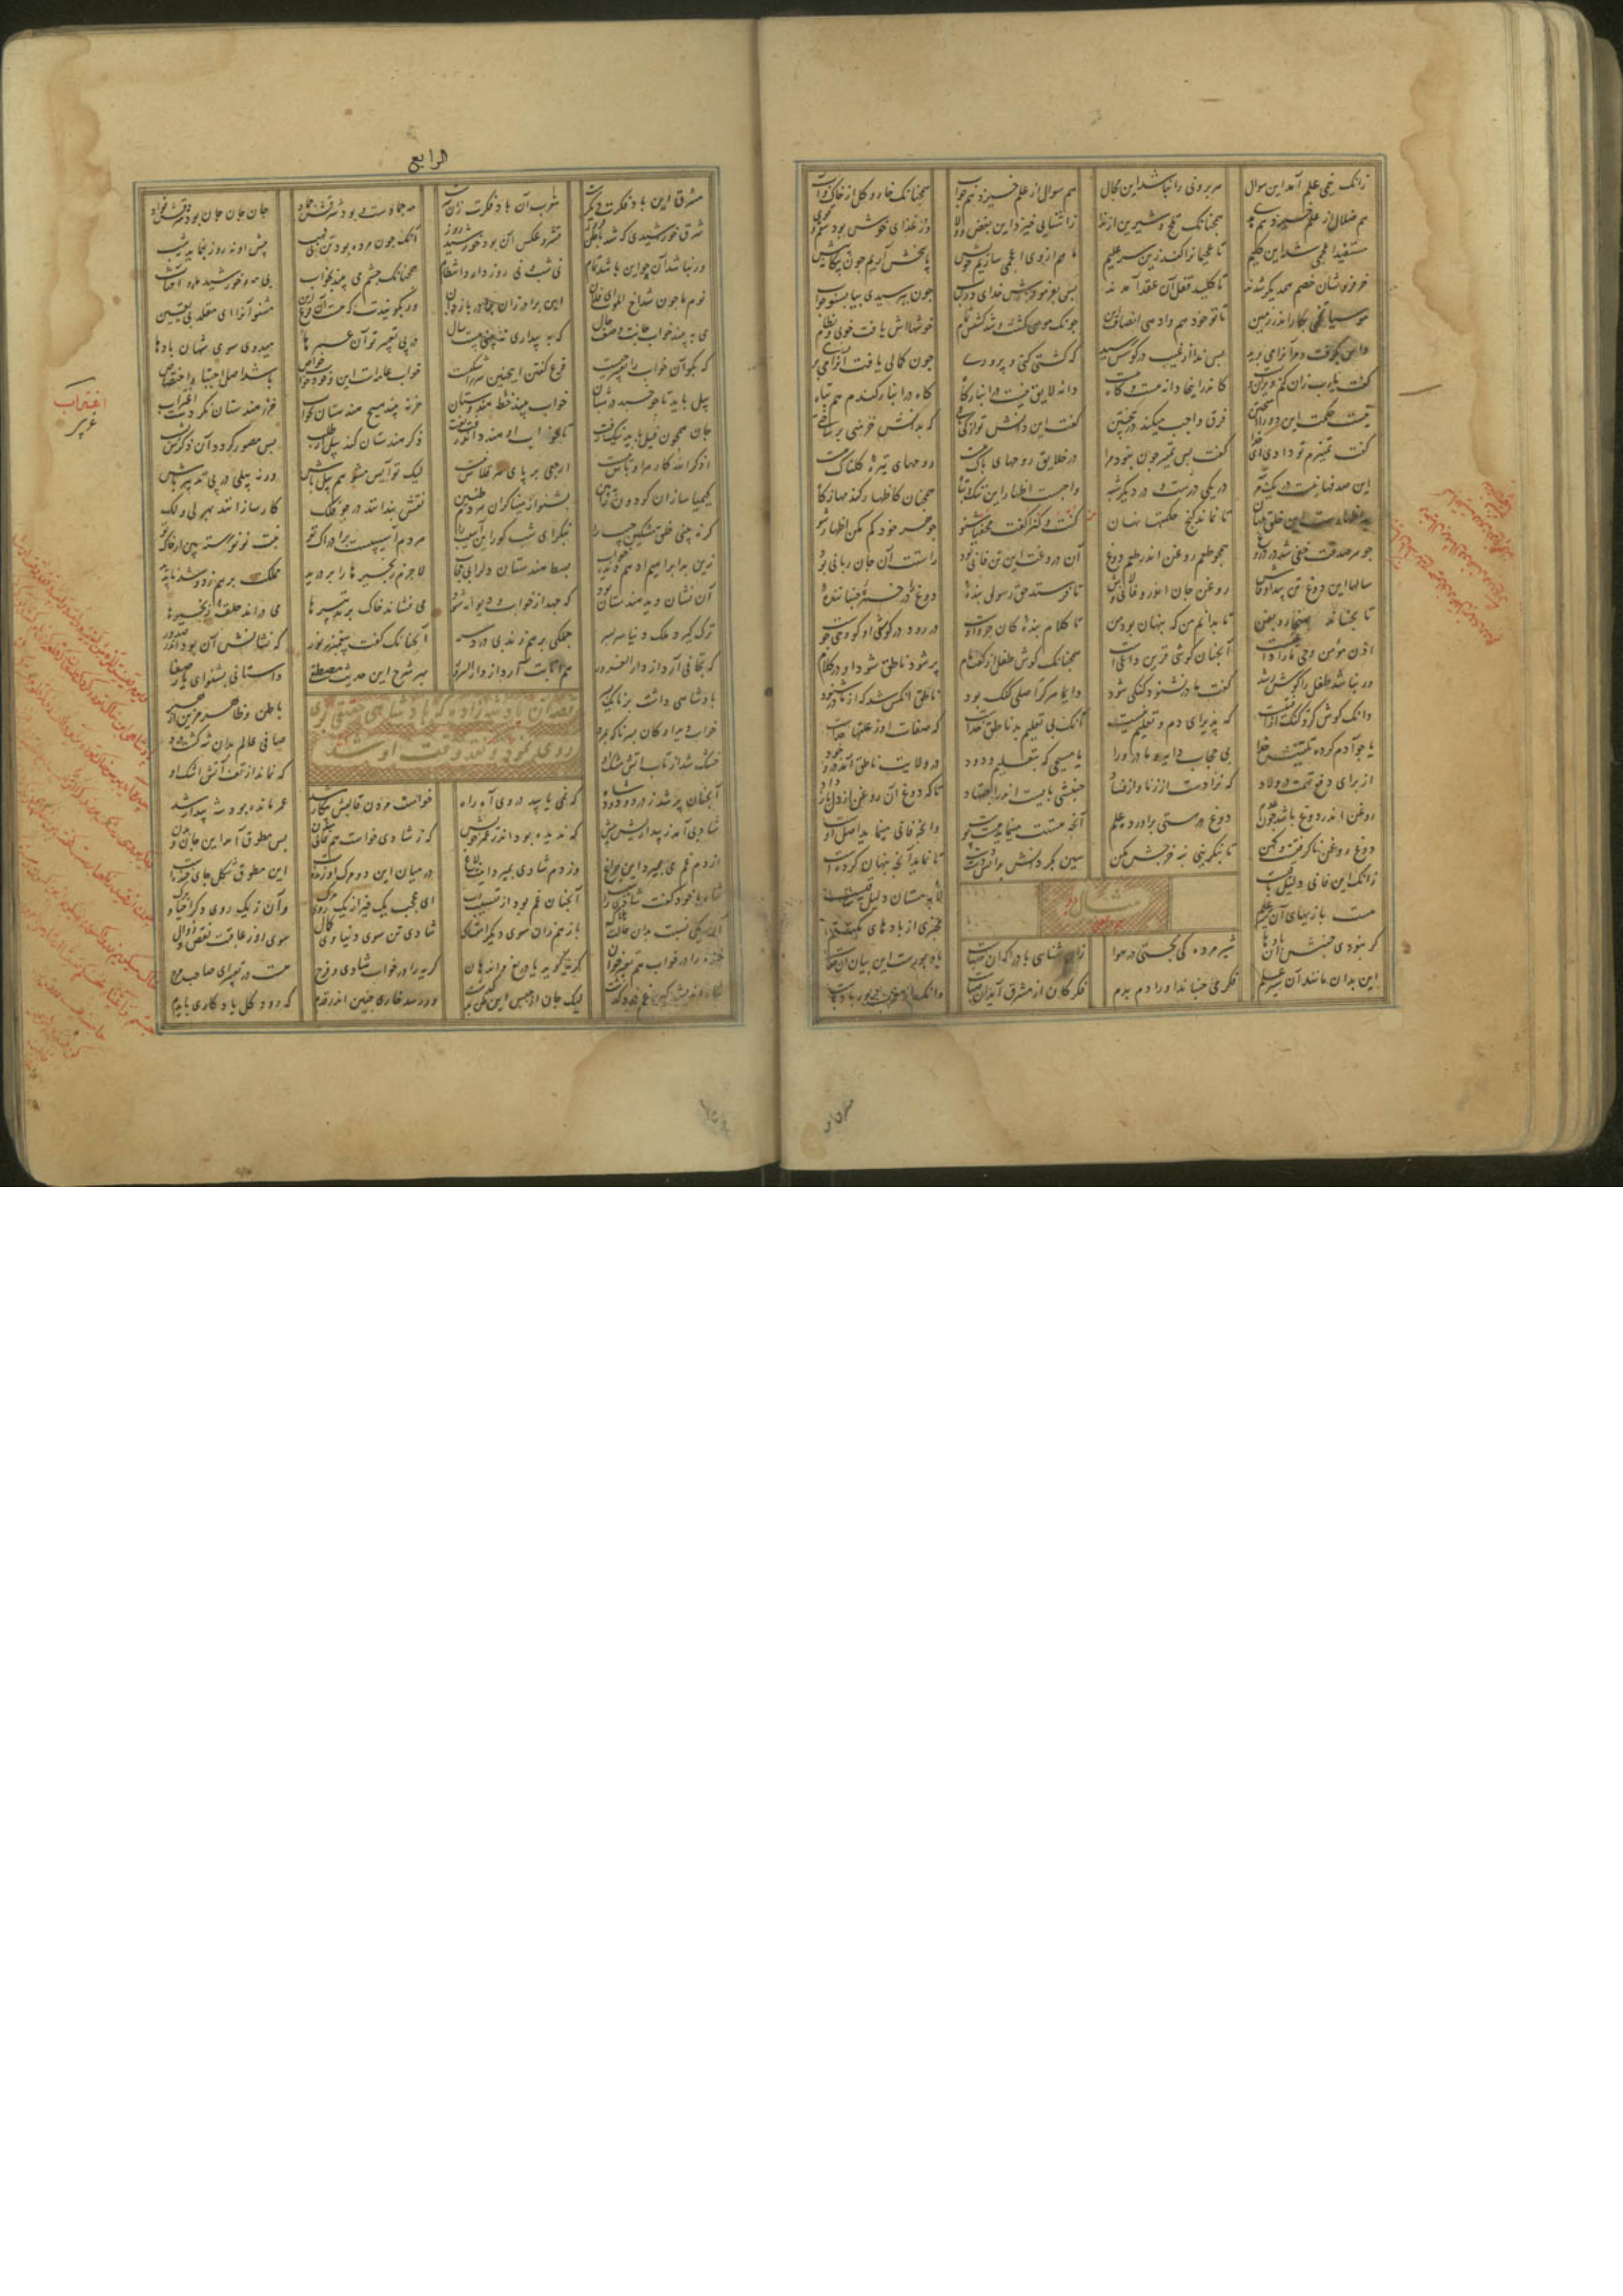 زانک نیمی علم آمد این سوال هر برونی را نباشد این مجال هم سوال از علم خیزد هم جواب همچنانک خار و گل از خاک و آب
هم ضلال از علم خیزد هم هدی همچنانک تلخ و شیرین از ندا ز آشنایی خیزد این بغض و ولا وز غذای خوش بود سقم و قوی
مستفید اعجمی شد این کلیم تا عجمیانرا کند زین سر علیم ما هم از وی اعجمی سازیم خویش پاسخش آریم چون بیگانه پیش
خرفروشان خصم همدیگر شدند تا کلید قفل آن عقد آمدند پس بفرمودش خدای چون بپرسیدی بیا بشنو جواب
موسیا تخمی بکار اندر زمین تا تو خود هم وا دهی انصاف این چونک موسی کشت و شد کشتش تمام خوشهااش یافت خوبی و نظام
داس بگرفت و مر آنرا می برید پس ندا از غیب در گوشش رسید که کشتی کنی و پروری چون کمالی یافت آنرا می بری
گفت یا رب زان کنم ویران و پست کاندر اینجا دانه هست و کاه هست دانه لایق نیست در انبار کاه کاه در انبار گندم هم تباه
نیست حکمت این دو را آمیختن فرق واجب میکند در بیختن گفت این دانش تو از کی یافتی که بدانش خرمنی بر ساختی
گفت تمییزم تو دادی ای خدا گفت پس تمییز چون نبود مرا در خلایق روحهای پاک هست روحهای تیره گلناک هست
این صدفها نیست در یک مرتبه در یکی درست و در دیگر شبه واجبست اظهار این نیک و تباه همچنان کاظهار گندمها ز کاه
بهر اظهارست این خلق جهان تا نماند گنج حکمتها نهان کنت کنزا گفت مخفیا شنو جوهر خود گم مکن اظهار شو
جوهر صدقت خفی شد در دروغ همچو طعم روغن اندر طعم دوغ آن دروغت این تن فانی بود راستت آن جان ربانی بود
سالها این دوغ تن پیدا و فاش روغن جان اندرو فانی و لاش تا فرستد حق رسولی بنده دوغ را در خمره جنباننده
تا بجنباند بهنجار و بفن تا بدانم من که پنهان بود من تا کلام بنده کان جزو اوست در رود در گوش او کو وحی جوست
اذن مؤمن وحی ما را واعیست آنچنان گوشی قرین داعیست همچنانک گوش طفل از گفت مام پر شود ناطق شود او در کلام
ور نباشد طفل را گوش رشد گفت مادر نشنود گنگی شود دایما هر کر اصلی گنگ بود ناطق آنکس شد که از مادر شنود
دانک گوش کر و گنگ از آفتیست که پذیرای دم و تعلیم نیست آنک بی تعلیم بد ناطق خداست که صفات او ز علتها جداست
یا چو آدم کرده تلقینش خدا بی حجاب دایه و مادر ورا یا مسیحی که بتعلیم ودود در ولادت ناطق آمد در وجود
از برای دفع تهمت در ولاد که نزادست از زنا و از فساد جنبشی بایست اندر اجتهاد تا که دوغ آن روغن از دل باز داد
روغن اندر دوغ باشد چون عدم دوغ در هستی برآورده علم آنچه هستت مینماید هست پوست وانچه فانی مینماید اصل اوست
دوغ روغن ناگرفتست و کهن تا بنگزینی بنه خرجش مکن هین بگردانش بدانش دست دست تا نماید آنچه پنهان کرده است
زانک این فانی دلیل باقیست لابه مستان دلیل ساقیست
مثال دیگر
هست بازیهای آن شیر علم مخبری از بادهای مکتتم
گر نبودی جنبش آن بادها شیر مرده کی بجستی در هوا زان شناسی باد را کان صباست یا دبورست این بیان آن خفاست
این بدان مانند آن شیر علم فکر می جنباند او را دم بدم فکر کان از مشرق آید آن صباست وانک از مغرب دبور با وباست
الرابع
مشرق این باد فکرت دیگرست مغرب آن باد فکرت زان سرست مه جمادست و بود شرقش جماد جان جان جان بود شرقش فواد
شرق خورشیدی که شد باطن فروز قشر و عکس آن بود خورشید روز آنک چون مرده بود تن بی لهب پیش او نه روز بنماید نه شب
ور نباشد آن چو این باشد تمام بی شب و بی روز دارد انتظام همچنانک چشم می بیند بخواب بی مه و خورشید ماه و آفتاب
نوم ما چون شد اخ الموت ای فلان زین برادر آن برادر را بدان ور بگویندت که هست آن فرع این مشنو آنرا ای مقلد بی یقین
می بیند خواب جانت وصف حال که به بیداری نبینی بیست سال در پی تعبیر تو آن عمرها میدوی سوی شهان با دها
که بگو آن خواب را تعبیر چیست فرع گفتن اینچنین سر را سگیست خواب عامه است این و خود خواب خواص باشد اصل اجتبا و اختصاص
پیل باید تا چو خسبد خواب بیند خطه هندوستان خر نبیند هیچ هندستان بخواب خر ز هندستان نکردست اغتراب
جان همچون پیل باید نیک زفت تا بخواب او هند داند رفت تفت ذکر هندستان کند پیل از طلب پس مصور گردد آن ذکرش بشب
اذکروا الله کار هر اوباش نیست ارجعی بر پای هر قلاش نیست لیک تو آیس مشو هم پیل باش ور نه پیلی در پی تبدیل باش
کیمیا سازان گردون را ببین بشنو از میناگران هر دم طنین نقش بندانند در جو فلک کار سازانند بهر لی و لک
گر نبینی خلق مشکین جیب را بنگر ای شب کور این آسیب را هر دم آسیبست بر ادراک تو نبت نو نو رسته بین از خاک تو
زین بد ابراهیم ادهم دیده خواب بسط هندستان دل را بی حجاب لاجرم زنجیرها را بر درید مملکت بر هم زد و شد ناپدید
آن نشان دید هندستان بود که جهد از خواب و دیوانه شود می فشاند خاک بر تدبیرها می دراند حلقه زنجیرها
ترک گیرد ملک دنیا سر بسر جملگی بر هم زند بی درد سر آنچنانک گفت پیغمبر ز نور که نشانش آن بود اندر صدور
که تجافی آرد از دار الغرور هم انابت آرد از دار السرور بهر شرح این حدیث مصطفی داستانی بشنو ای یار صفا
قصه آن پادشه زاده که پادشاهی حقیقی بوی
روی نمود و نقد وقت او شد
پادشاهی داشت برنا یک پسر باطن و ظاهر مزین از هنر
خواب دید او کان پسر ناگه بمرد صافی عالم بران شه گشت درد
خشک شد از تاب آتش مشک او که نماند از تف آتش اشک او
آنچنان پر شد ز دود و درد شاه که نمی یابید در وی آه راه خواست مردن قالبش بیکار شد عمر مانده بود شه بیدار شد
شادیی آمد ز بیداریش پیش که ندیده بود اندر عمر خویش که ز شادی خواست هم فانی شدن بس مطوق آمد این جان و بدن
از دم غم می بمیرد این چراغ وز دم شادی بمیرد اینت لاغ در میان این دو مرگ او زنده است این مطوق شکل جای خنده است
شاه با خود گفت شادی را سبب آنچنان غم بود از تسبیب رب ای عجب یک چیز از یک روی مرگ وان ز یک روی دگر احیا و برگ
آن یکی نسبت بدان حالت هلاک باز هم زان سوی دیگر امتساک شادی تن سوی دنیاوی کمال سوی روز عاقبت نقص و زوال
خنده را در خواب هم تعبیر خوان گریه گوید با دریغ و اندهان گریه را در خواب شادی و فرح هست در تعبیر ای صاحب مرح
شاه اندیشید کین غم خود گذشت لیک جان از جنس این بدظن گشت ور رسد خاری چنین اندر قدم که رود گل یادگاری بایدم
اغتراب